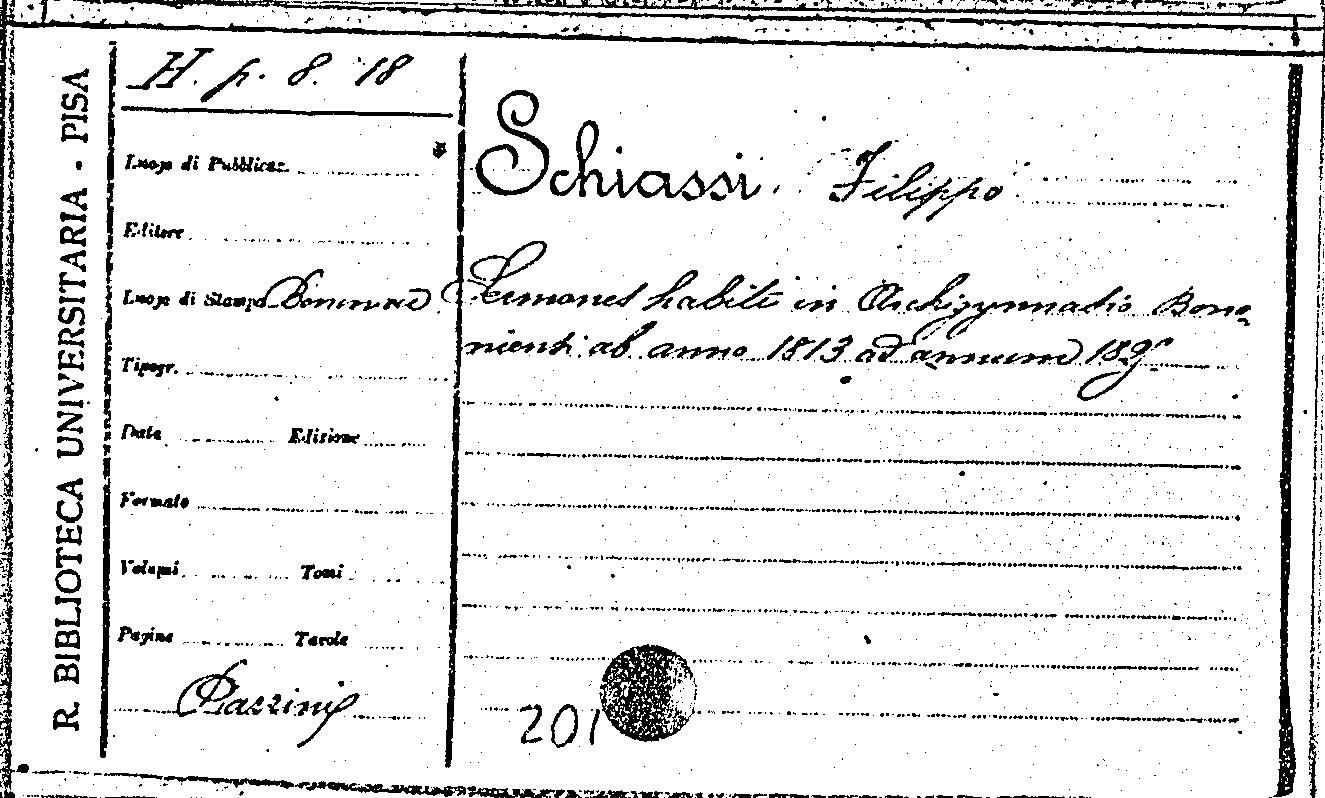 R. BIBLIOTECA UNIVERSITARIA - PISA
H. p. 8. 18
Luogo di Pubblicaz.
Editore
Luogo di Stampa Bononiae
Tipogr.
Data Edizione
Formato
Volumi Tomi
Pagine Tavole
Passini
Schiassi Filippo
Sermones habiti in Archigymnasio Bono-
niensi ab anno 1813 ad annum
201